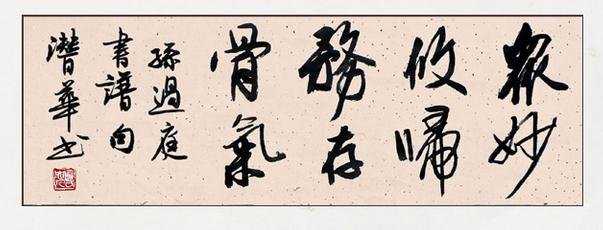 衆妙
攸歸
務存
骨氣
孫過庭
書譜句
潛華书